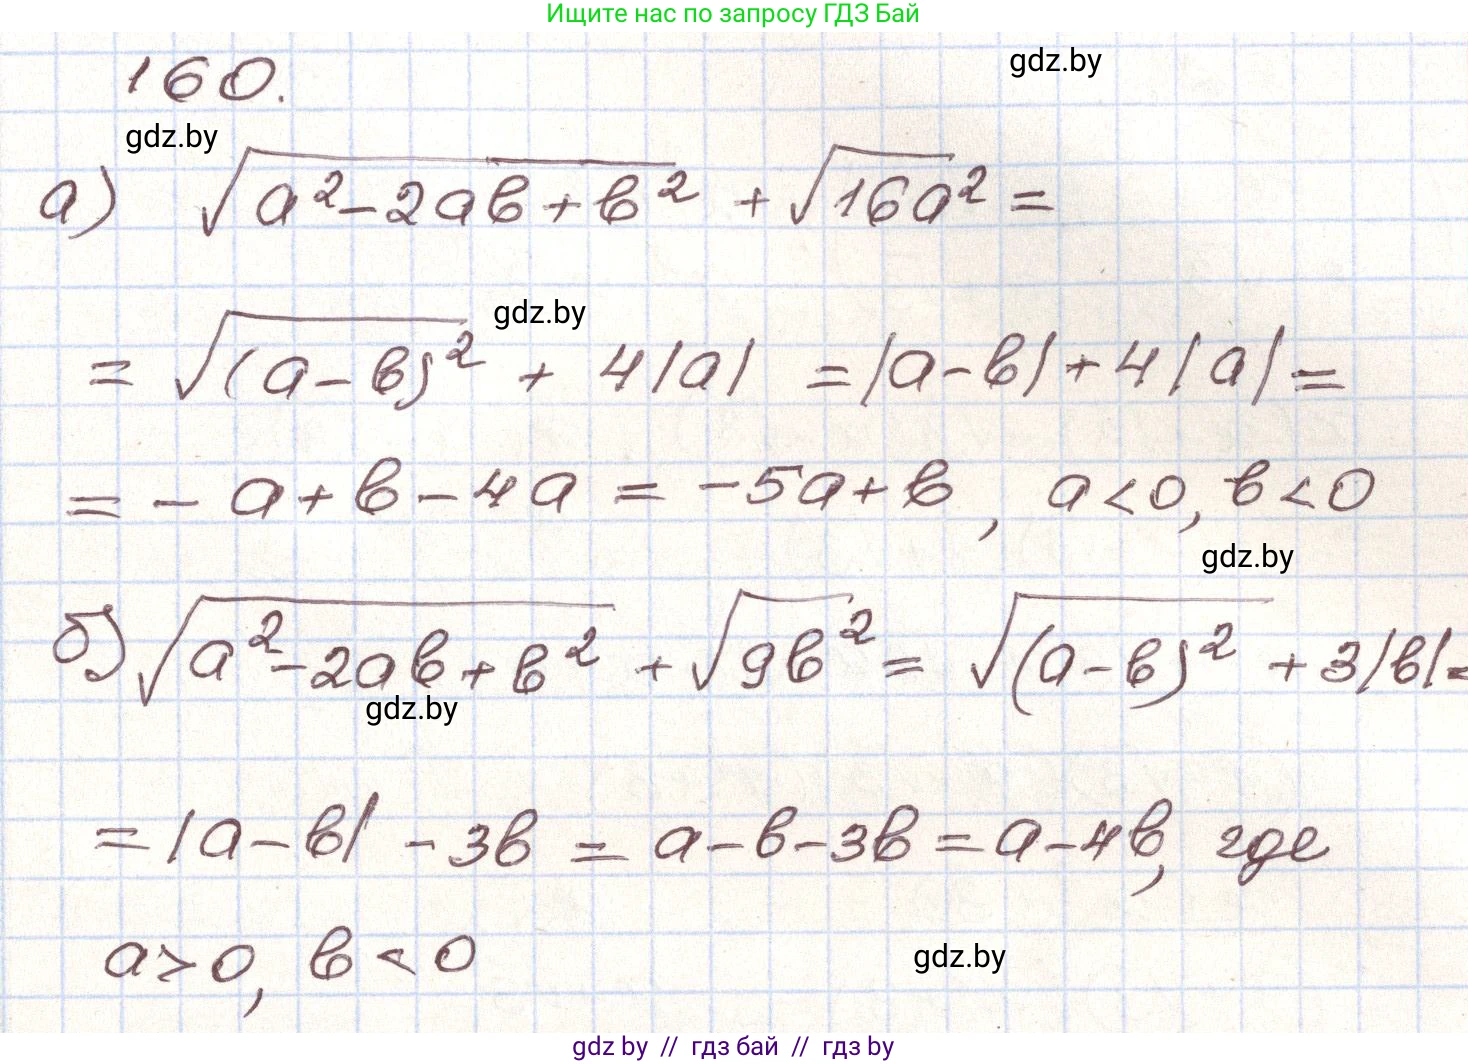 Ищите нас по запросу ГДЗ Бай
160.
gdz.by
gdz.by
а) √(a² - 2ab + b²) + √(16a²) =
gdz.by
= √((a - b)²) + 4|a| = |a - b| + 4|a| =
= - a + b - 4a = -5a + b, a < 0, b < 0
gdz.by
б) √(a² - 2ab + b²) + √(9b²) = √((a - b)²) + 3|b| =
gdz.by
= |a - b| - 3b = a - b - 3b = a - 4b, где
a > 0, b < 0
gdz.by
gdz by // гдз бай // гдз by